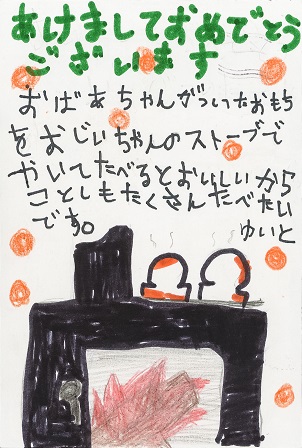 あけましておめでとう
ございます
おばあちゃんがついたおもち
をおじいちゃんのストーブで
やいてたべるとおいしいから
ことしもたくさんたべたい
です。
ゆいと